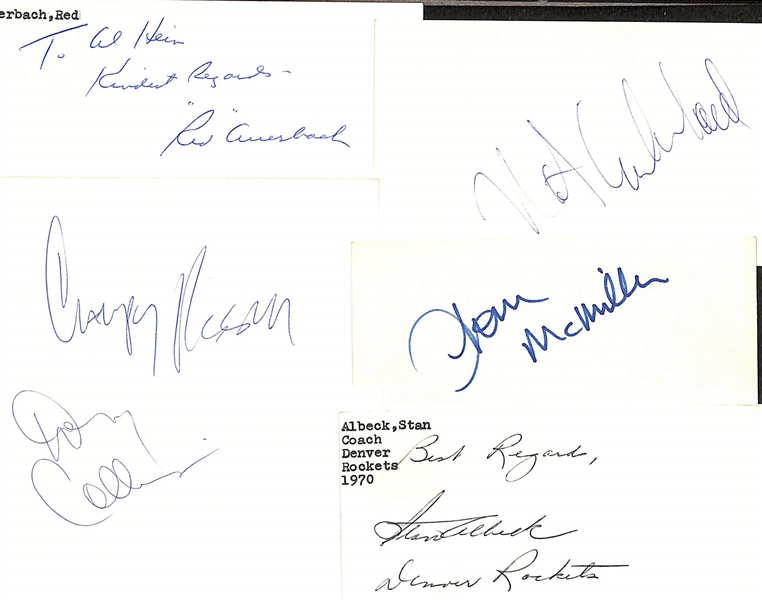 erbach,Red
To Al Hein
Kindest Regards -
"Red" Auerbach
Campy Russell
Tom
McMillen
Doug
Collins
Albeck,Stan
Coach
Denver
Rockets
1970
Best Regards,
Stan Albeck
Denver Rockets